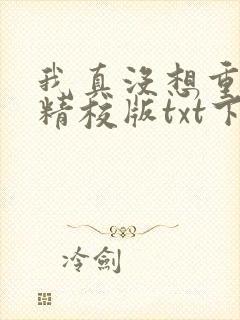 我真没想重
精校版txt下
冷劍